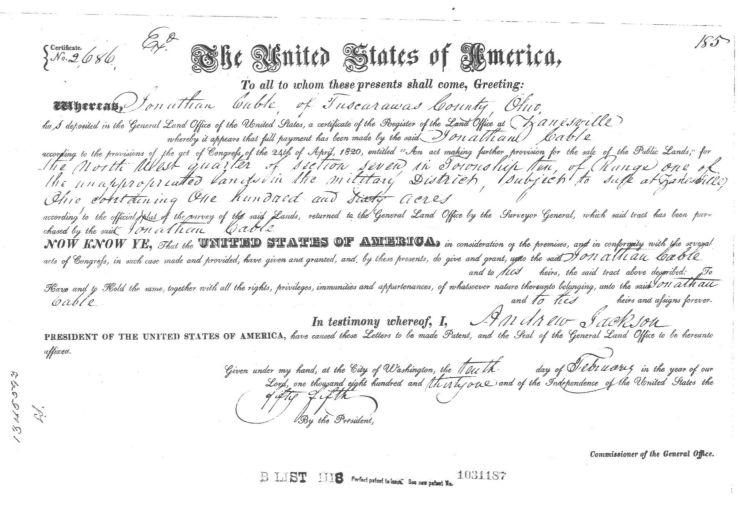 Certificate. Exd 185
No. 2686.
The United States of America,
To all to whom these presents shall come, Greeting:
Whereas, Jonathan Cable, of Tuscarawas County, Ohio,
has deposited in the General Land Office of the United States, a certificate of the Register of the Land Office at Zanesville
whereby it appears that full payment has been made by the said Jonathan Cable
according to the provisions of the act of Congress of the 24th of April, 1820, entitled "An act making further provision for the sale of the Public Lands," for
the North West quarter of section seven in Township ten, of Range one of
the unappropriated lands in the military District, subject to sale at Zanesville,
Ohio containing One hundred and sixty acres
according to the official plat of the survey of the said Lands, returned to the General Land Office by the Surveyor General, which said tract has been pur-
chased by the said Jonathan Cable
NOW KNOW YE, That the UNITED STATES OF AMERICA, in consideration of the premises, and in conformity with the several
acts of Congress, in such case made and provided, have given and granted, and, by these presents, do give and grant, unto the said Jonathan Cable
and to his heirs, the said tract above described: To
Have and to Hold the same, together with all the rights, privileges, immunities and appurtenances, of whatsoever nature thereunto belonging, unto the said Jonathan
Cable and to his heirs and assigns forever.
In testimony whereof, I, Andrew Jackson
PRESIDENT OF THE UNITED STATES OF AMERICA, have caused these Letters to be made Patent, and the Seal of the General Land Office to be hereunto
affixed.
Given under my hand, at the City of Washington, the tenth day of February in the year of our
Lord, one thousand eight hundred and thirty one and of the Independence of the United States the
fifty fifth
By the President,
Commissioner of the General Office.
B LIST 1118 Perfect patent to issue. See new patent No. 1031187